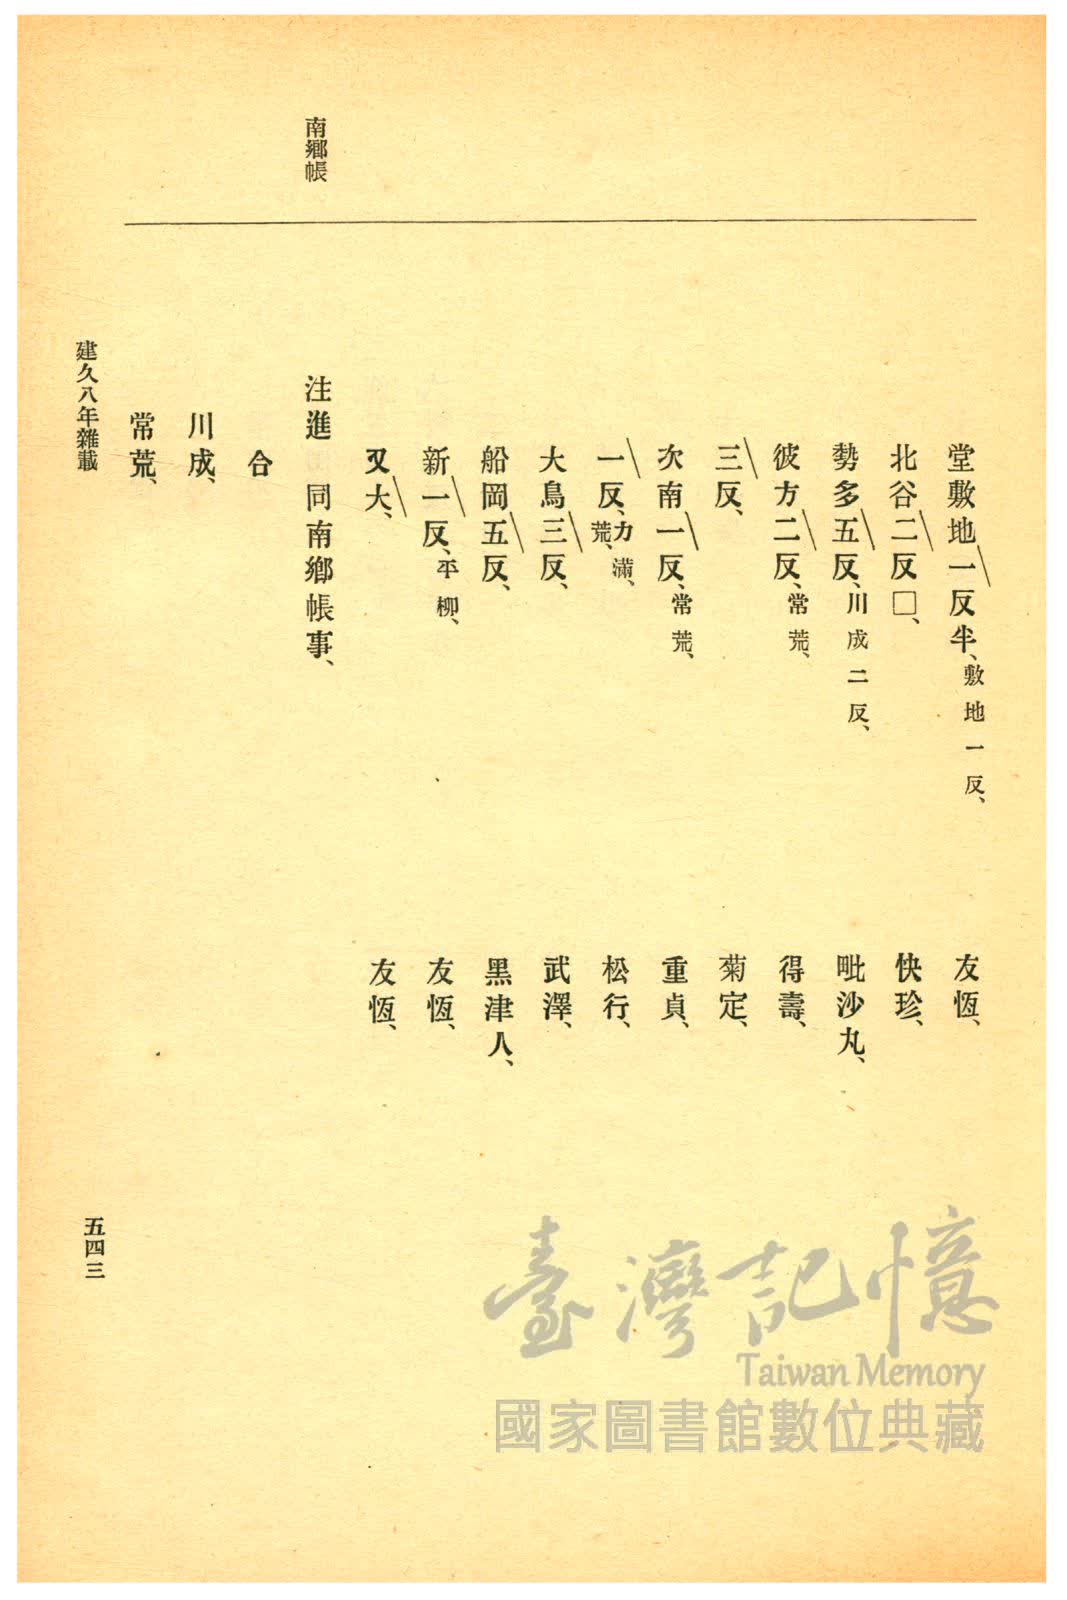 南鄕帳
堂敷地一反半、敷地一反、 友恆、
北谷二反□、 快珍、
勢多五反、川成二反、 毗沙丸、
彼方二反、常荒、 得壽、
三反、 菊定、
次南一反、常荒、 重貞、
一反、力滿、荒、 松行、
大鳥三反、 武澤、
船岡五反、 黑津人、
新一反、平柳、 友恆、
又大、 友恆、
注進 同南鄕帳事、
合
川成、
常荒、
建久八年雜載
五四三
臺灣記憶
Taiwan Memory
國家圖書館數位典藏